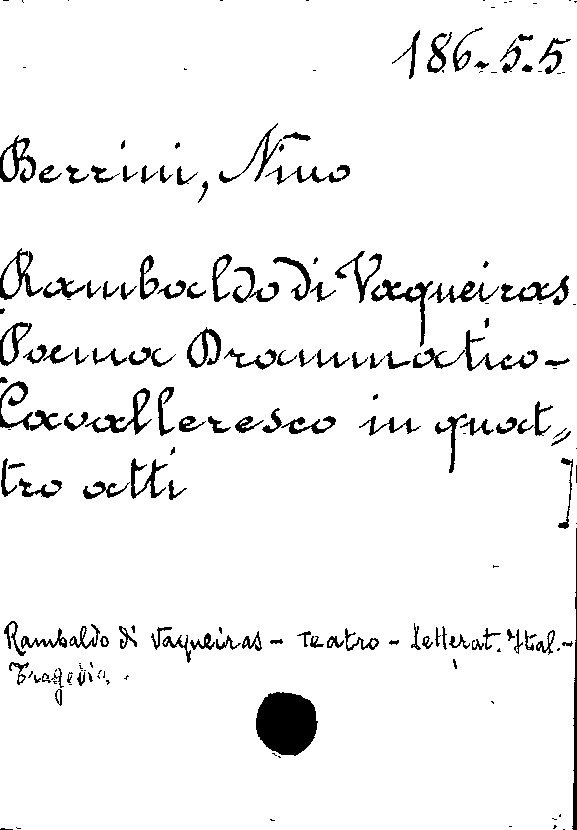 186.5.5
Berrini, Nino
Rambaldo di Vaqueiras
Poema Drammatico-
Cavalleresco in quat-
tro atti ]
Rambaldo di Vaqueiras - Teatro - Letterat. Ital. -
Tragedia.